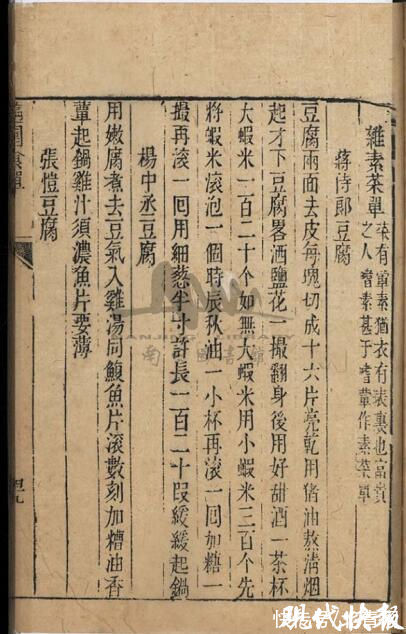 雜素菜單
菜有葷素猶衣有表裏也富貴
之人嗜素甚于嗜葷作素菜單
蔣侍郎豆腐
豆腐兩面去皮每塊切成十六片亮乾用猪油熬清烟
起才下豆腐畧洒鹽花一撮翻身後用好甜酒一茶杯
大蝦米一百二十个如無大蝦米用小蝦米三百个先
將蝦米滾泡一個時辰秋油一小杯再滾一囘加糖一
撮再滾一囘用細葱半寸許長一百二十段緩緩起鍋
楊中丞豆腐
用嫩腐煮去豆氣入雞湯同鰒魚片滾數刻加糟油香
蕈起鍋雞汁須濃魚片要薄
張愷豆腐
現代快報